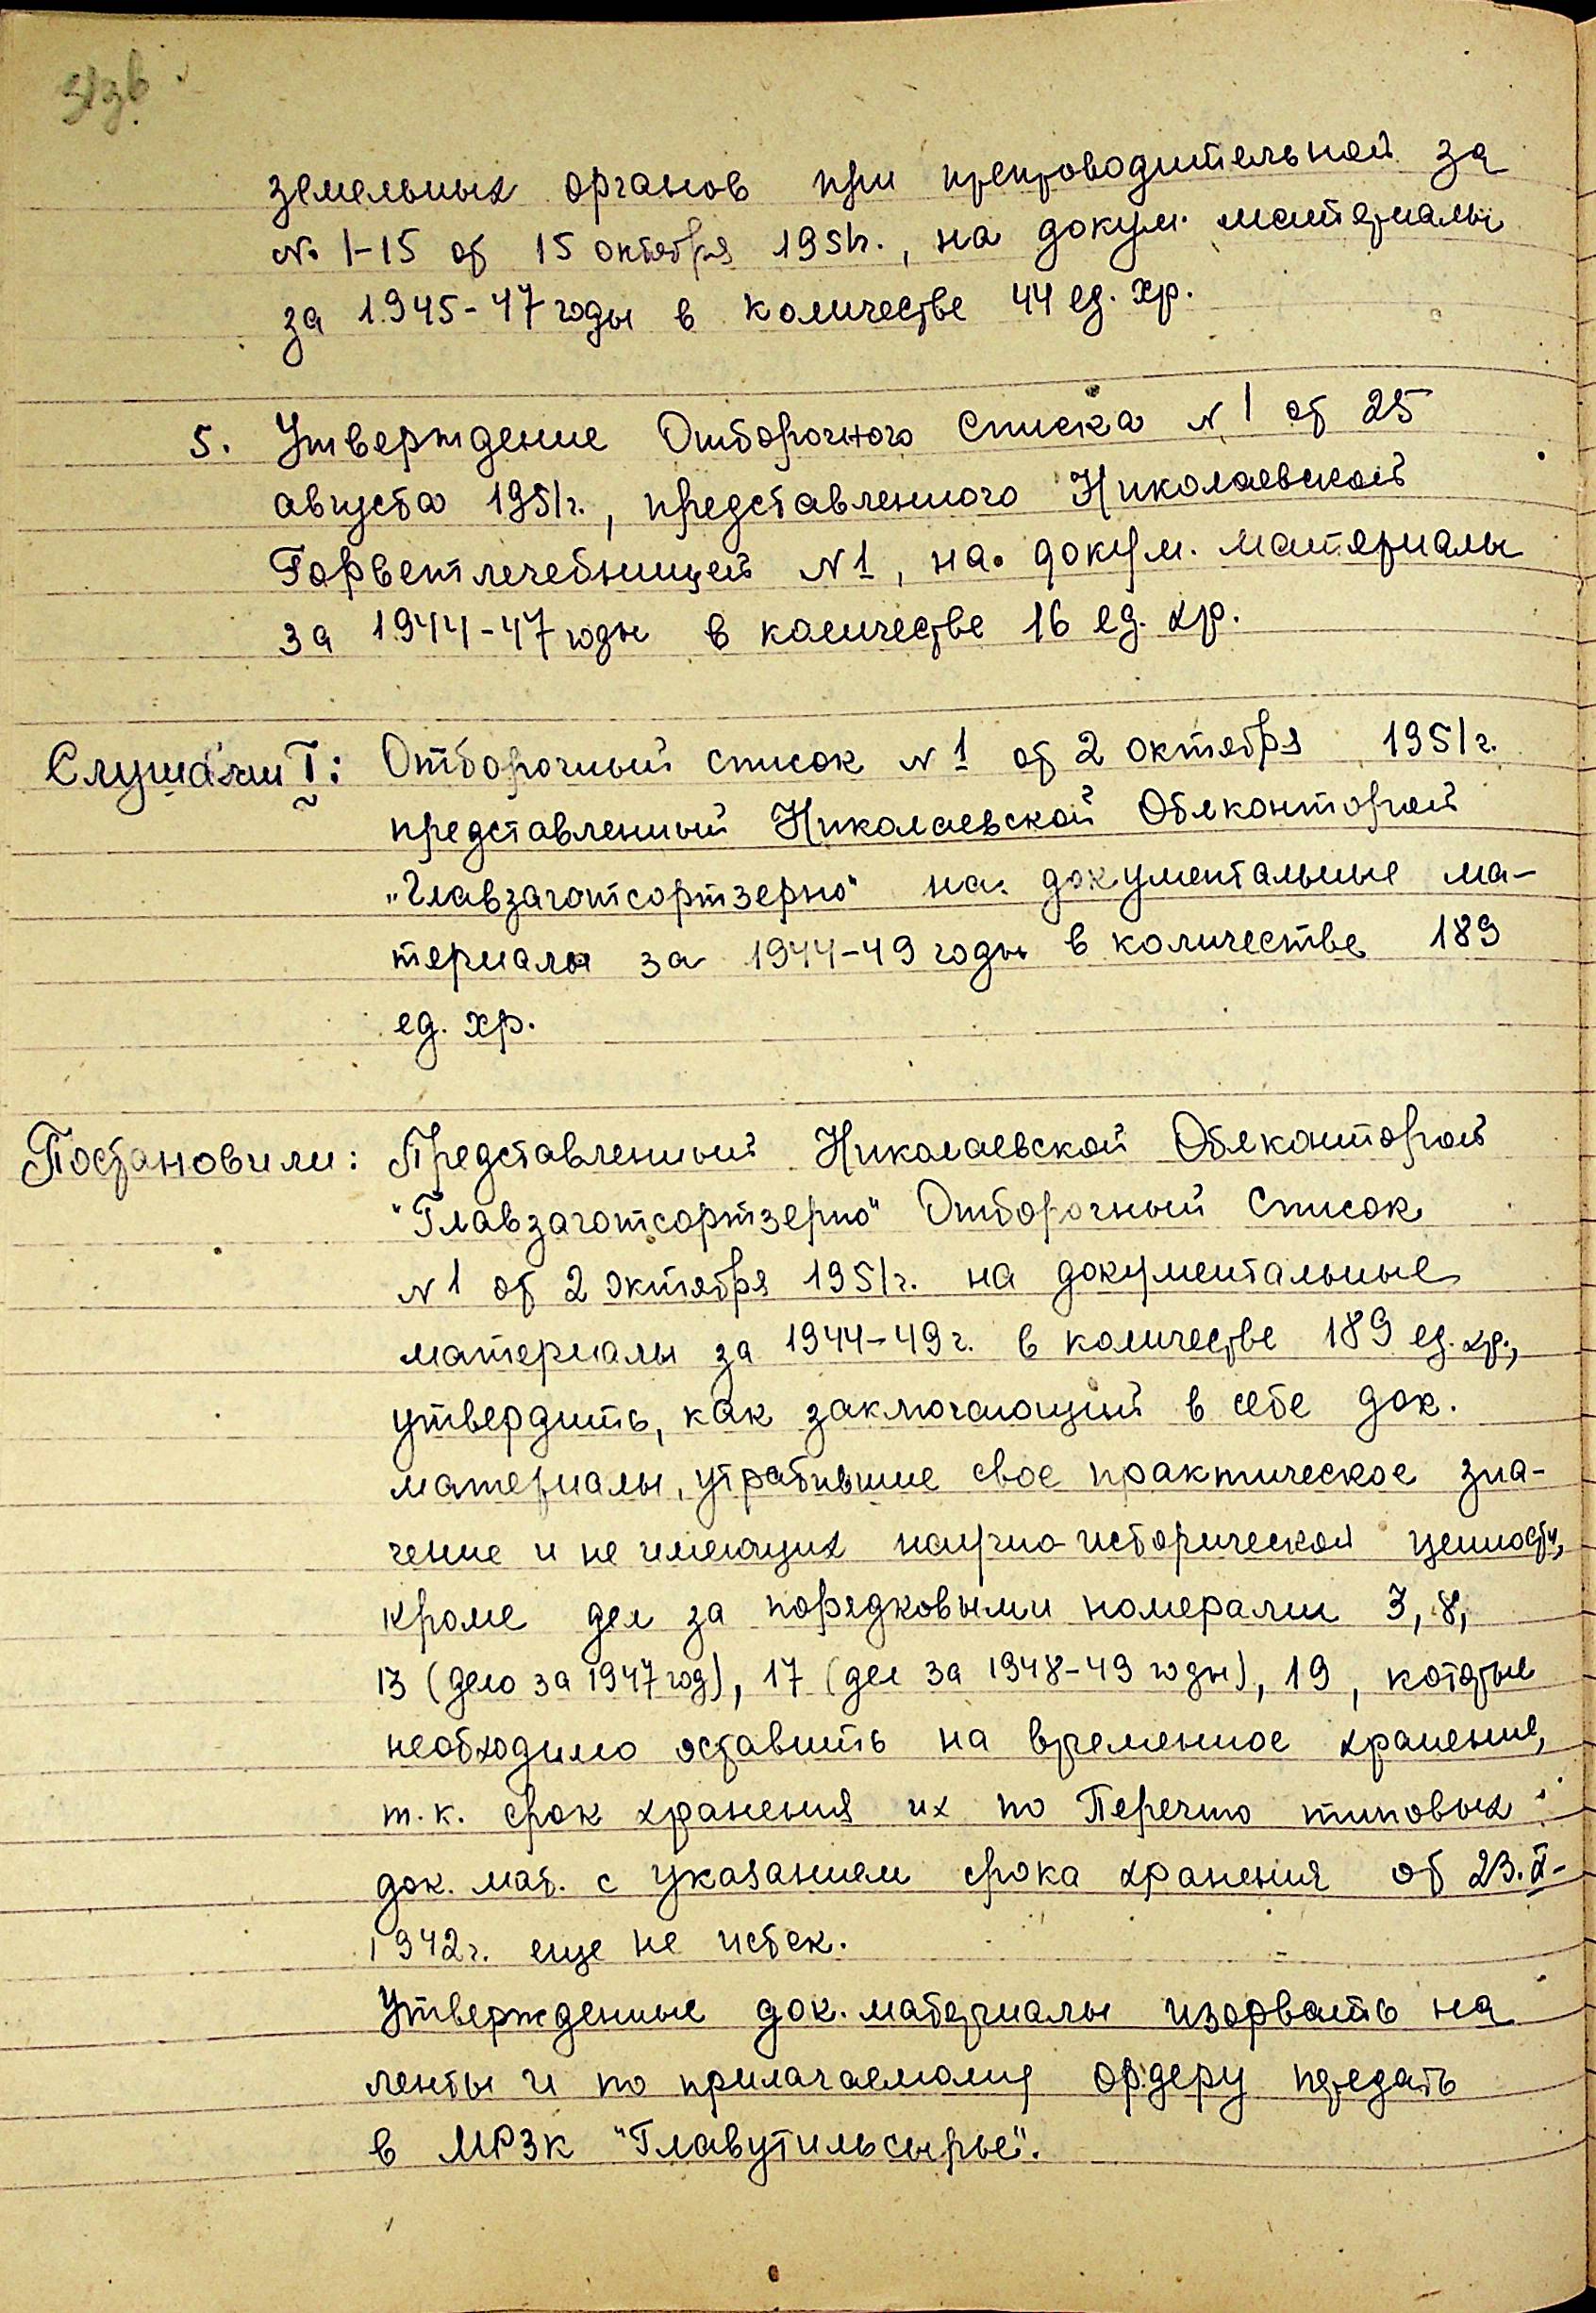 земельных органов при препроводительной за
№ 1-15 от 15 октября 1951г., на докум. материалы
за 1945-47 годы в количестве 44 ед. хр.
5. Утверждение Отборочного Списка №1 от 25
августа 1951г., представленного Николаевской
Горветлечебницей №1, на докум. материалы
за 1944-47 годы в количестве 16 ед. хр.
Слушали I: Отборочный список №1 от 2 октября 1951г.
представленный Николаевской Облконторой
„Главзаготсортзерно" на документальные ма-
териалы за 1944-49 годы в количестве 189
ед. хр.
Постановили: Представленный Николаевской Облконторой
"Главзаготсортзерно" Отборочный Список
№1 от 2 октября 1951г. на документальные
материалы за 1944-49г. в количестве 189 ед. хр.,
утвердить, как заключающий в себе док.
материалы, утратившие свое практическое зна-
чение и не имеющих научно-исторической ценности,
кроме дел за порядковыми номерами 3, 8,
13 (дело за 1947 год), 17 (дел за 1948-49 годы), 19, которые
необходимо оставить на временное хранение,
т.к. срок хранения их по Перечню типовых
док. мат. с указанием срока хранения от 23.X-
1942г. еще не истек.
Утвержденные док. материалы изорвать на
ленты и по прилагаемому ордеру передать
в МРЗК "Главутильсырье".